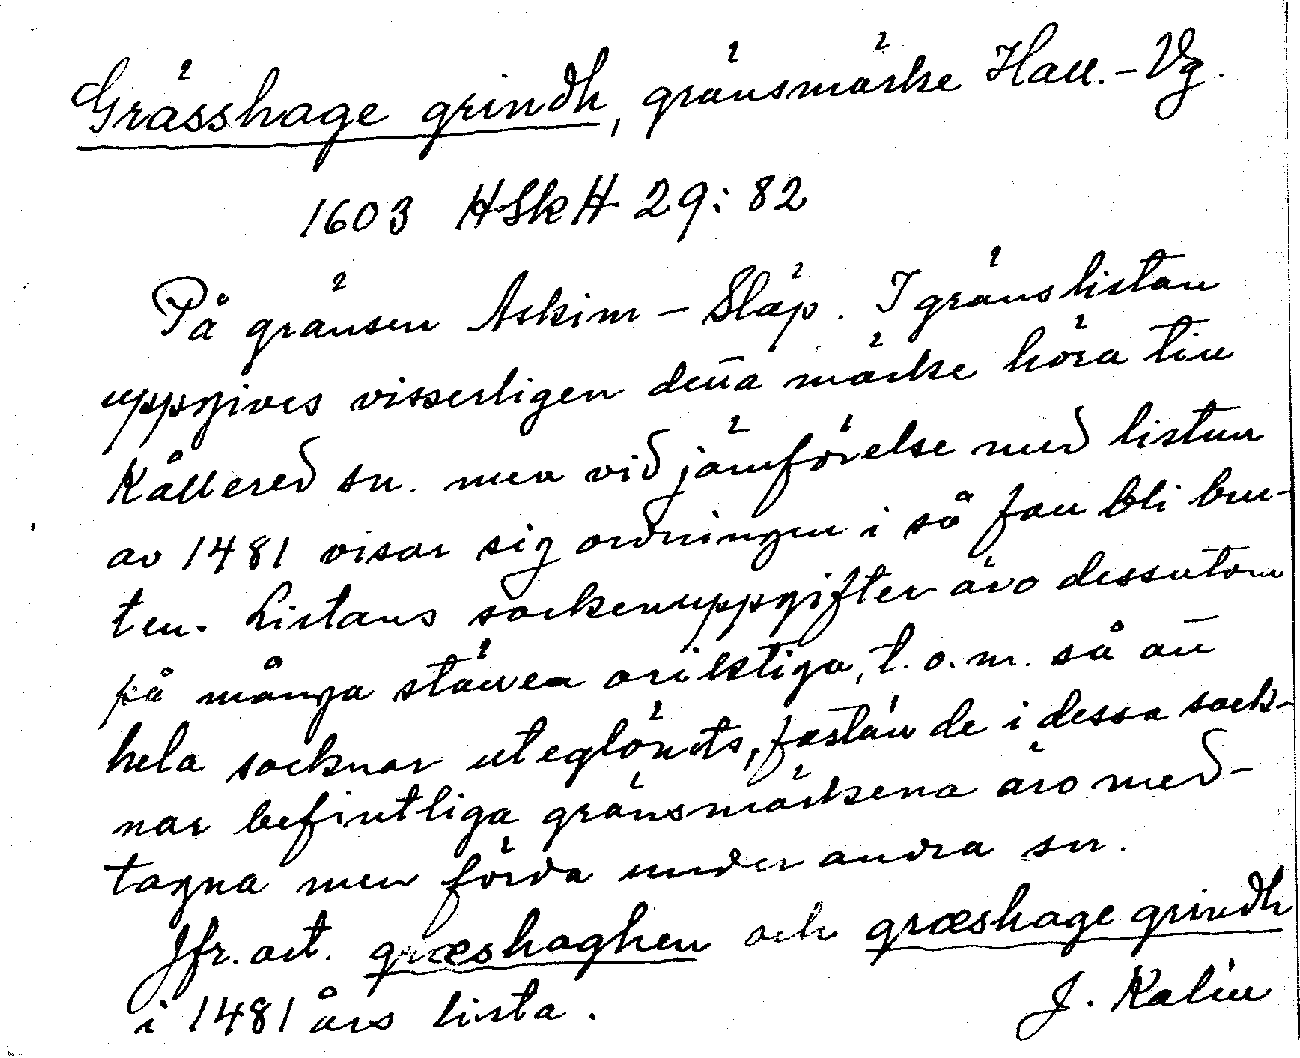 Grässhage grindh, gränsmärke Hall.-Vg.
1603 HSkH 29:82
På gränsen Askim - Släp. I gränslistan
uppgives visserligen detta märke höra till
Kållered sn. men vid jämförelse med listan
av 1481 visar sig ordningen i så fall bli bru-
ten. Listans sockenuppgifter äro dessutom
på många ställen oriktiga, t.o.m. så att
hela socknar uteglömts, fastän de i dessa sock-
nar befintliga gränsmärkena äro med-
tagna men förda under andra sn.
Jfr. art. græshaghen och græshage grindh
i 1481 års lista. J. Kalén